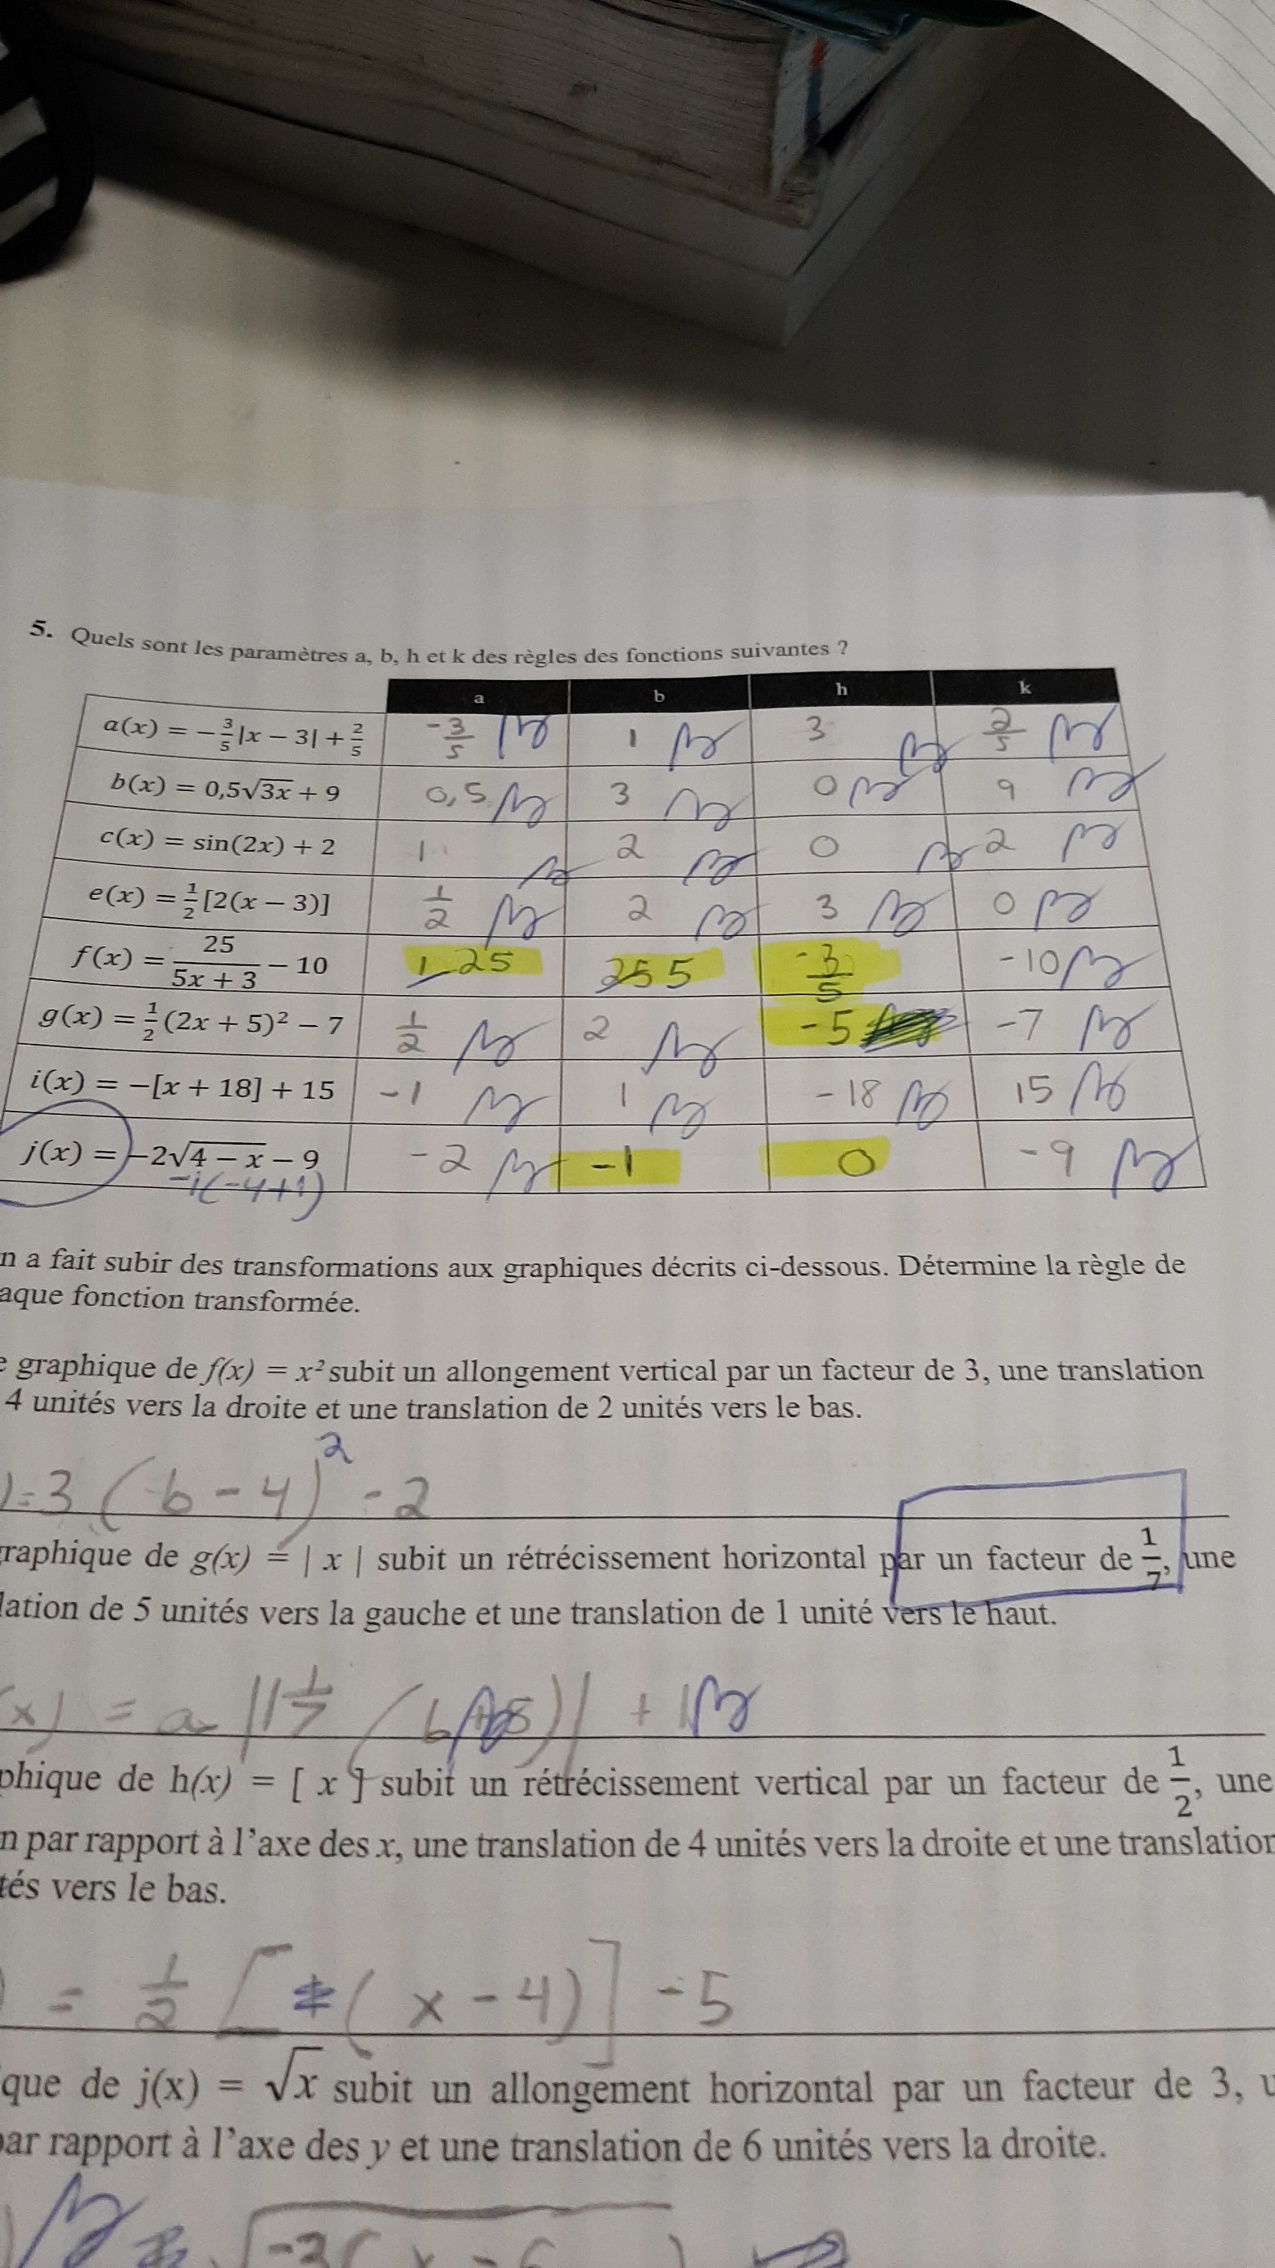 5. Quels sont les paramètres a, b, h et k des règles des fonctions suivantes ?
a b h k
a(x) = −3/5|x − 3| + 2/5 -3/5 1 3 2/5
b(x) = 0,5√3x + 9 0,5 3 0 9
c(x) = sin(2x) + 2 1 2 0 2
e(x) = 1/2[2(x − 3)] 1/2 2 3 0
f(x) = 25/(5x + 3) − 10 25 5 -3/5 -10
g(x) = 1/2(2x + 5)² − 7 1/2 2 -5 -7
i(x) = −[x + 18] + 15 -1 1 -18 15
j(x) = −2√4 − x − 9 -2 -1 0 -9
-1(-4+1)
n a fait subir des transformations aux graphiques décrits ci-dessous. Détermine la règle de
aque fonction transformée.
e graphique de f(x) = x² subit un allongement vertical par un facteur de 3, une translation
4 unités vers la droite et une translation de 2 unités vers le bas.
)=3(b-4)² -2
graphique de g(x) = | x | subit un rétrécissement horizontal par un facteur de 1/7, une
lation de 5 unités vers la gauche et une translation de 1 unité vers le haut.
(x) = a + 1
phique de h(x) = [ x ] subit un rétrécissement vertical par un facteur de 1/2, une
n par rapport à l’axe des x, une translation de 4 unités vers la droite et une translation
tés vers le bas.
) = 1/2 [ (x-4)] -5
que de j(x) = √x subit un allongement horizontal par un facteur de 3, u
par rapport à l’axe des y et une translation de 6 unités vers la droite.